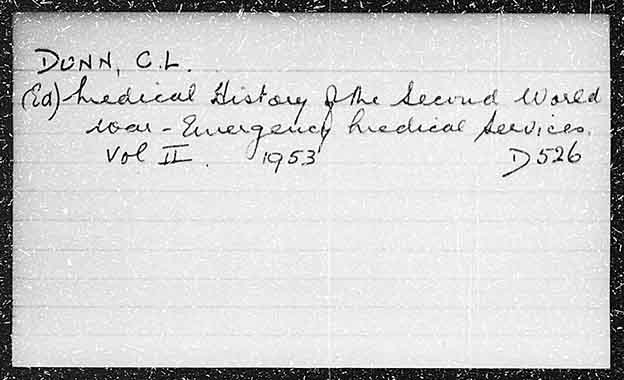 DUNN, C.L.
(Ed) Medical History of the Second World
War - Emergency Medical Services.
Vol II. 1953 D526